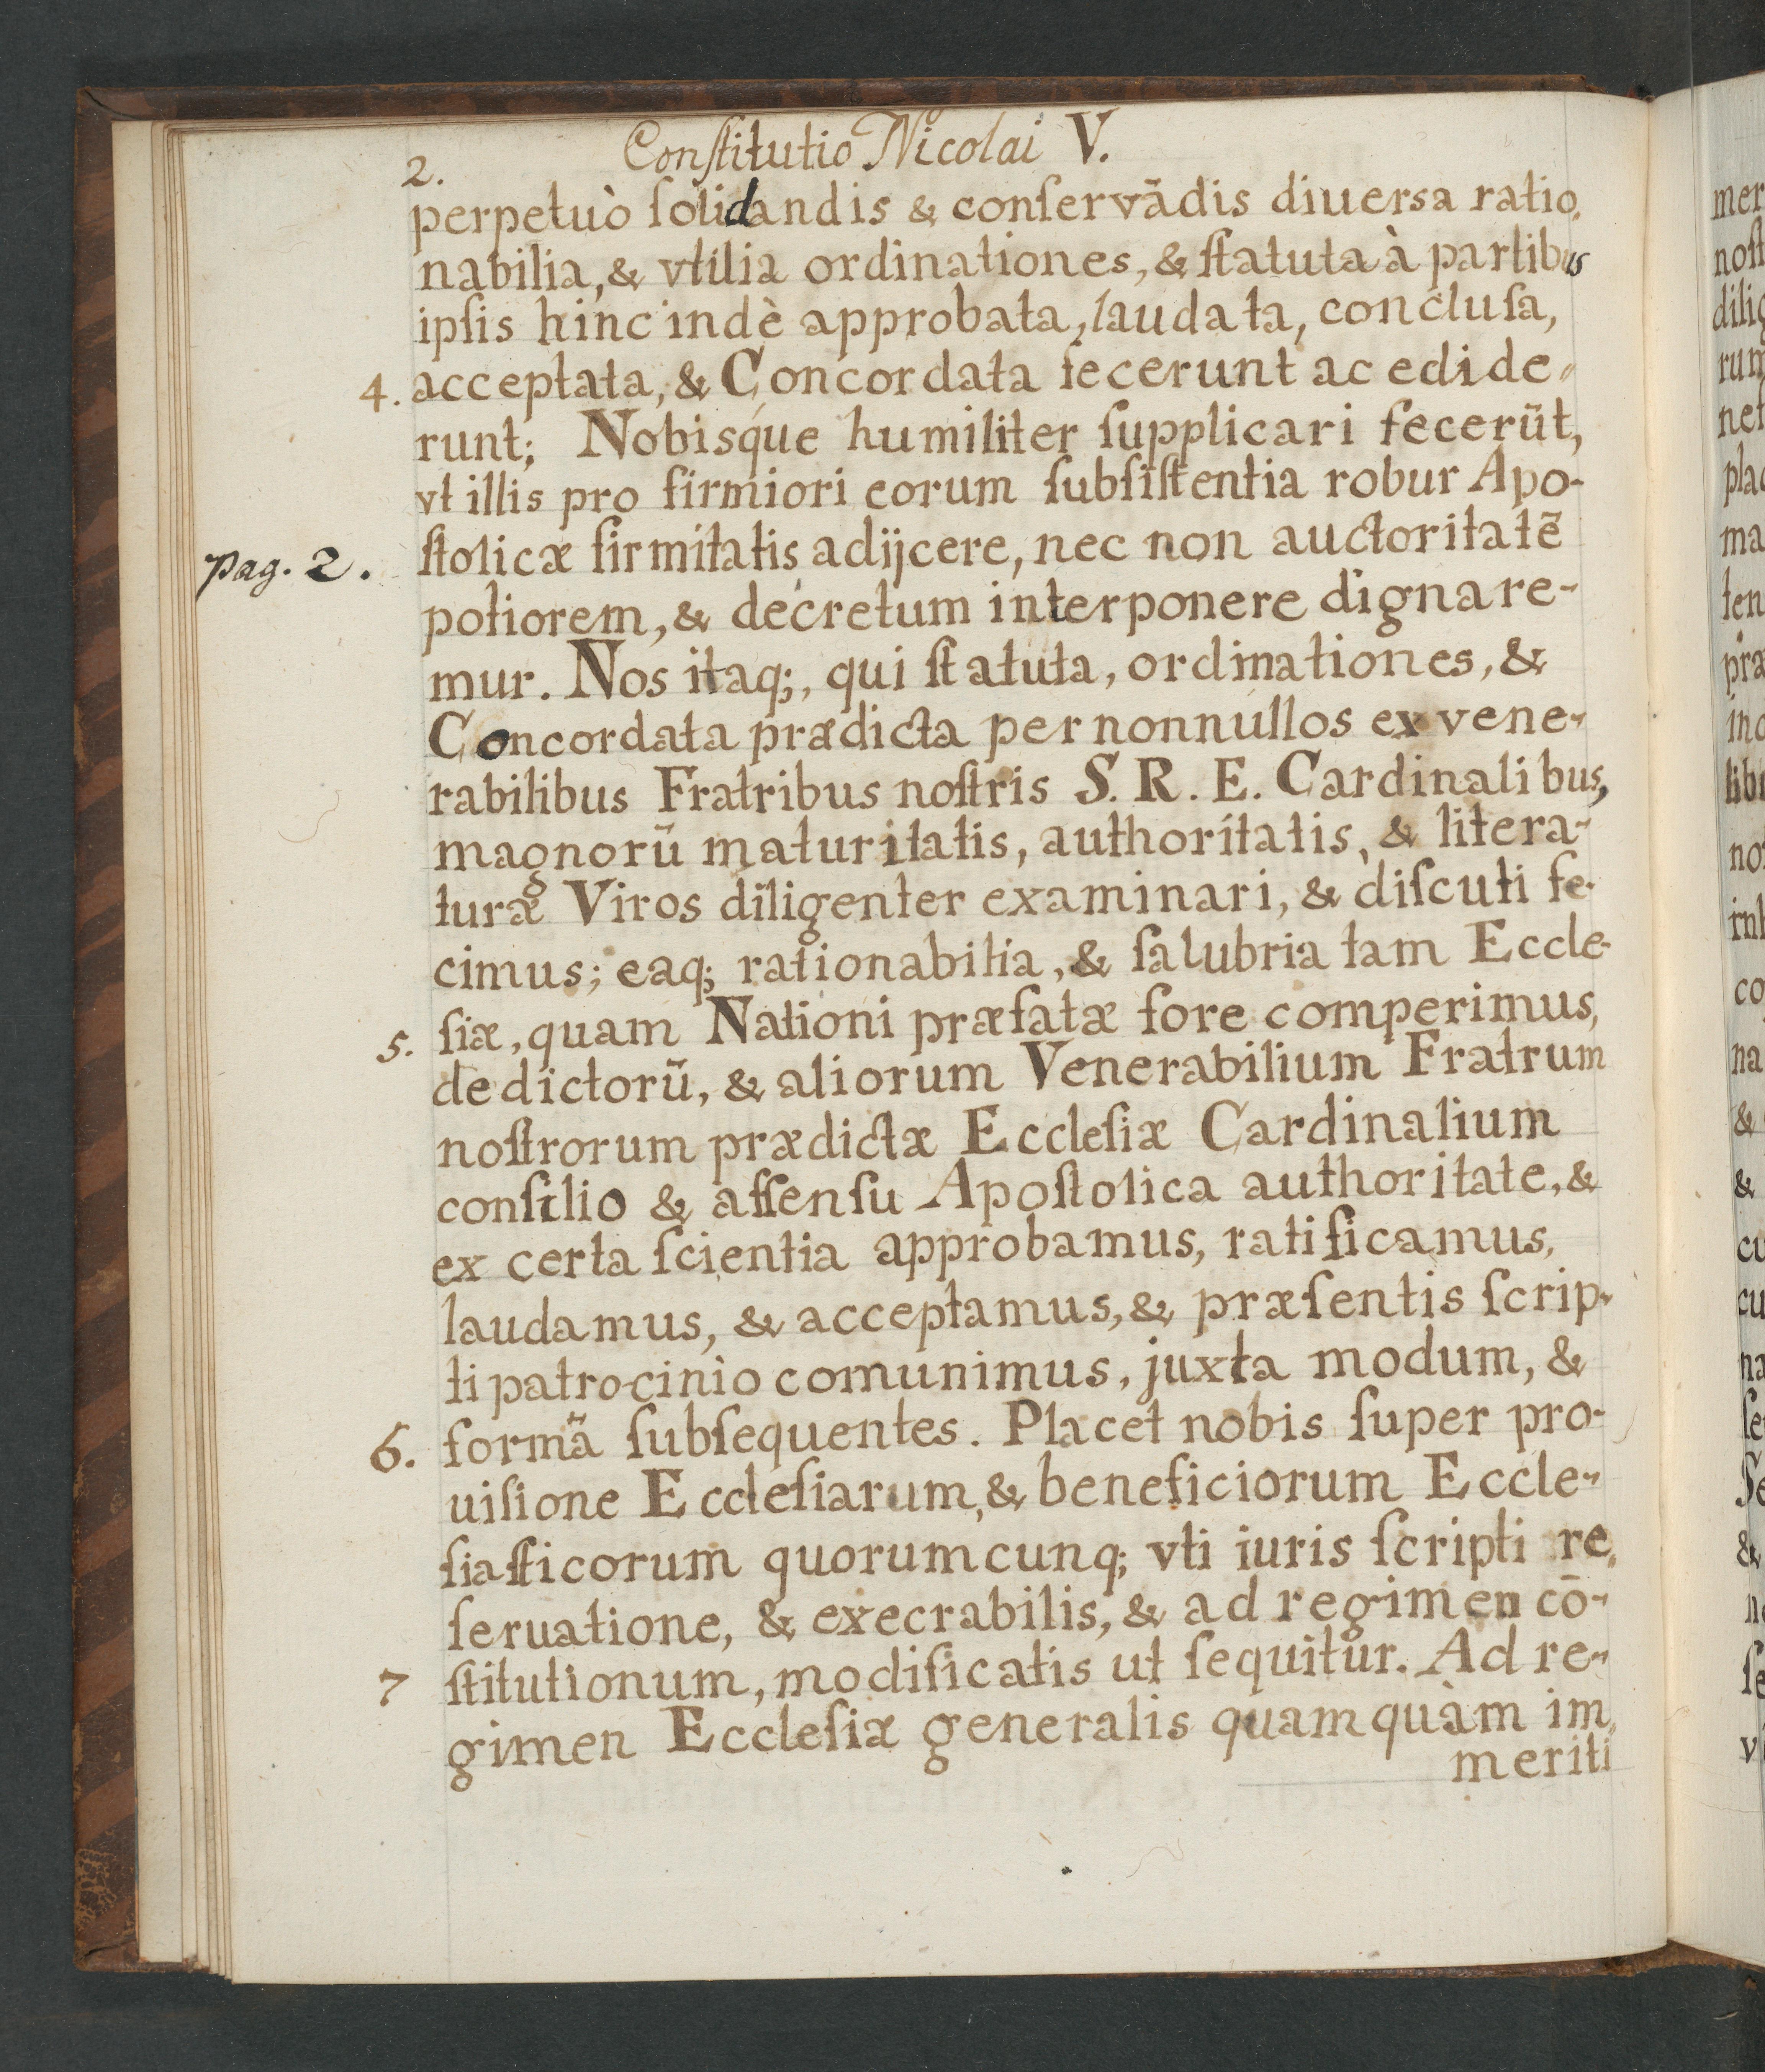 2. Conſtitutio Nicolai V.
perpetuò ſolidandis & conſervãdis diuersa ratio,
nabilia, & vtilia ordinationes, & ſtatuta à partibus
ipſis hinc indè approbata, laudata, concluſa,
4. acceptata, & Concordata fecerunt ac edide-
runt; Nobisque humiliter ſupplicari fecerũt,
vt illis pro firmiori eorum ſubſiſtentia robur Apo-
pag. 2. ſtolicæ firmitatis adijcere, nec non auctoritatẽ
potiorem, & decretum interponere dignare-
mur. Nos itaq;, qui ſtatuta, ordinationes, &
Concordata prædicta per nonnullos ex vene-
rabilibus Fratribus noſtris S. R. E. Cardinalibus,
magnorũ maturitatis, authoritatis, & litera-
turæ Viros diligenter examinari, & diſcuti fe-
cimus; eaq; rationabilia, & ſalubria tam Eccle-
5. ſiæ, quam Nationi præfatæ fore comperimus,
de dictorũ, & aliorum Venerabilium Fratrum
noſtrorum prædictæ Eccleſiæ Cardinalium
conſilio & aſſenſu Apoſtolica authoritate, &
ex certa ſcientia approbamus, ratificamus,
laudamus, & acceptamus, & præſentis ſcrip-
ti patrocinio comunimus, juxta modum, &
6. formã ſubſequentes. Placet nobis ſuper pro-
uiſione Eccleſiarum, & beneficiorum Eccle-
ſiaſticorum quorumcunq; vti iuris ſcripti re,
ſeruatione, & execrabilis, & ad regimen cō-
7 ſtitutionum, modificatis ut ſequitur. Ad re-
gimen Eccleſiæ generalis quamquàm im,
meriti